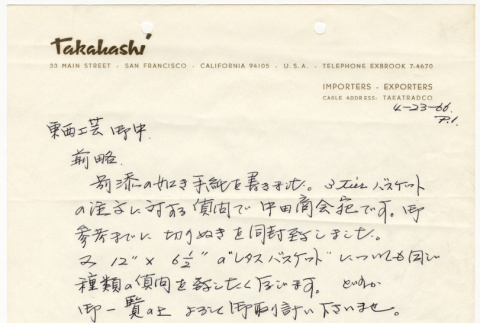 Takahashi
33 MAIN STREET · SAN FRANCISCO · CALIFORNIA 94105 · U.S.A. · TELEPHONE EXBROOK 7-4670
IMPORTERS - EXPORTERS
CABLE ADDRESS: TAKATRADCO
4-23-66
P.1.
東西工芸 御中
前略
別添の如き手紙を書きました。3 Tier バスケット
の注文に対する質問で 中田商会宛です。御
参考までに 切りぬきを同封致しました。
又 12" x 6 1/2" の"レタスバスケット"についても同じ
種類の質問を致したく存じます。
御一覧の上 よろしく御取り計い下さいませ。